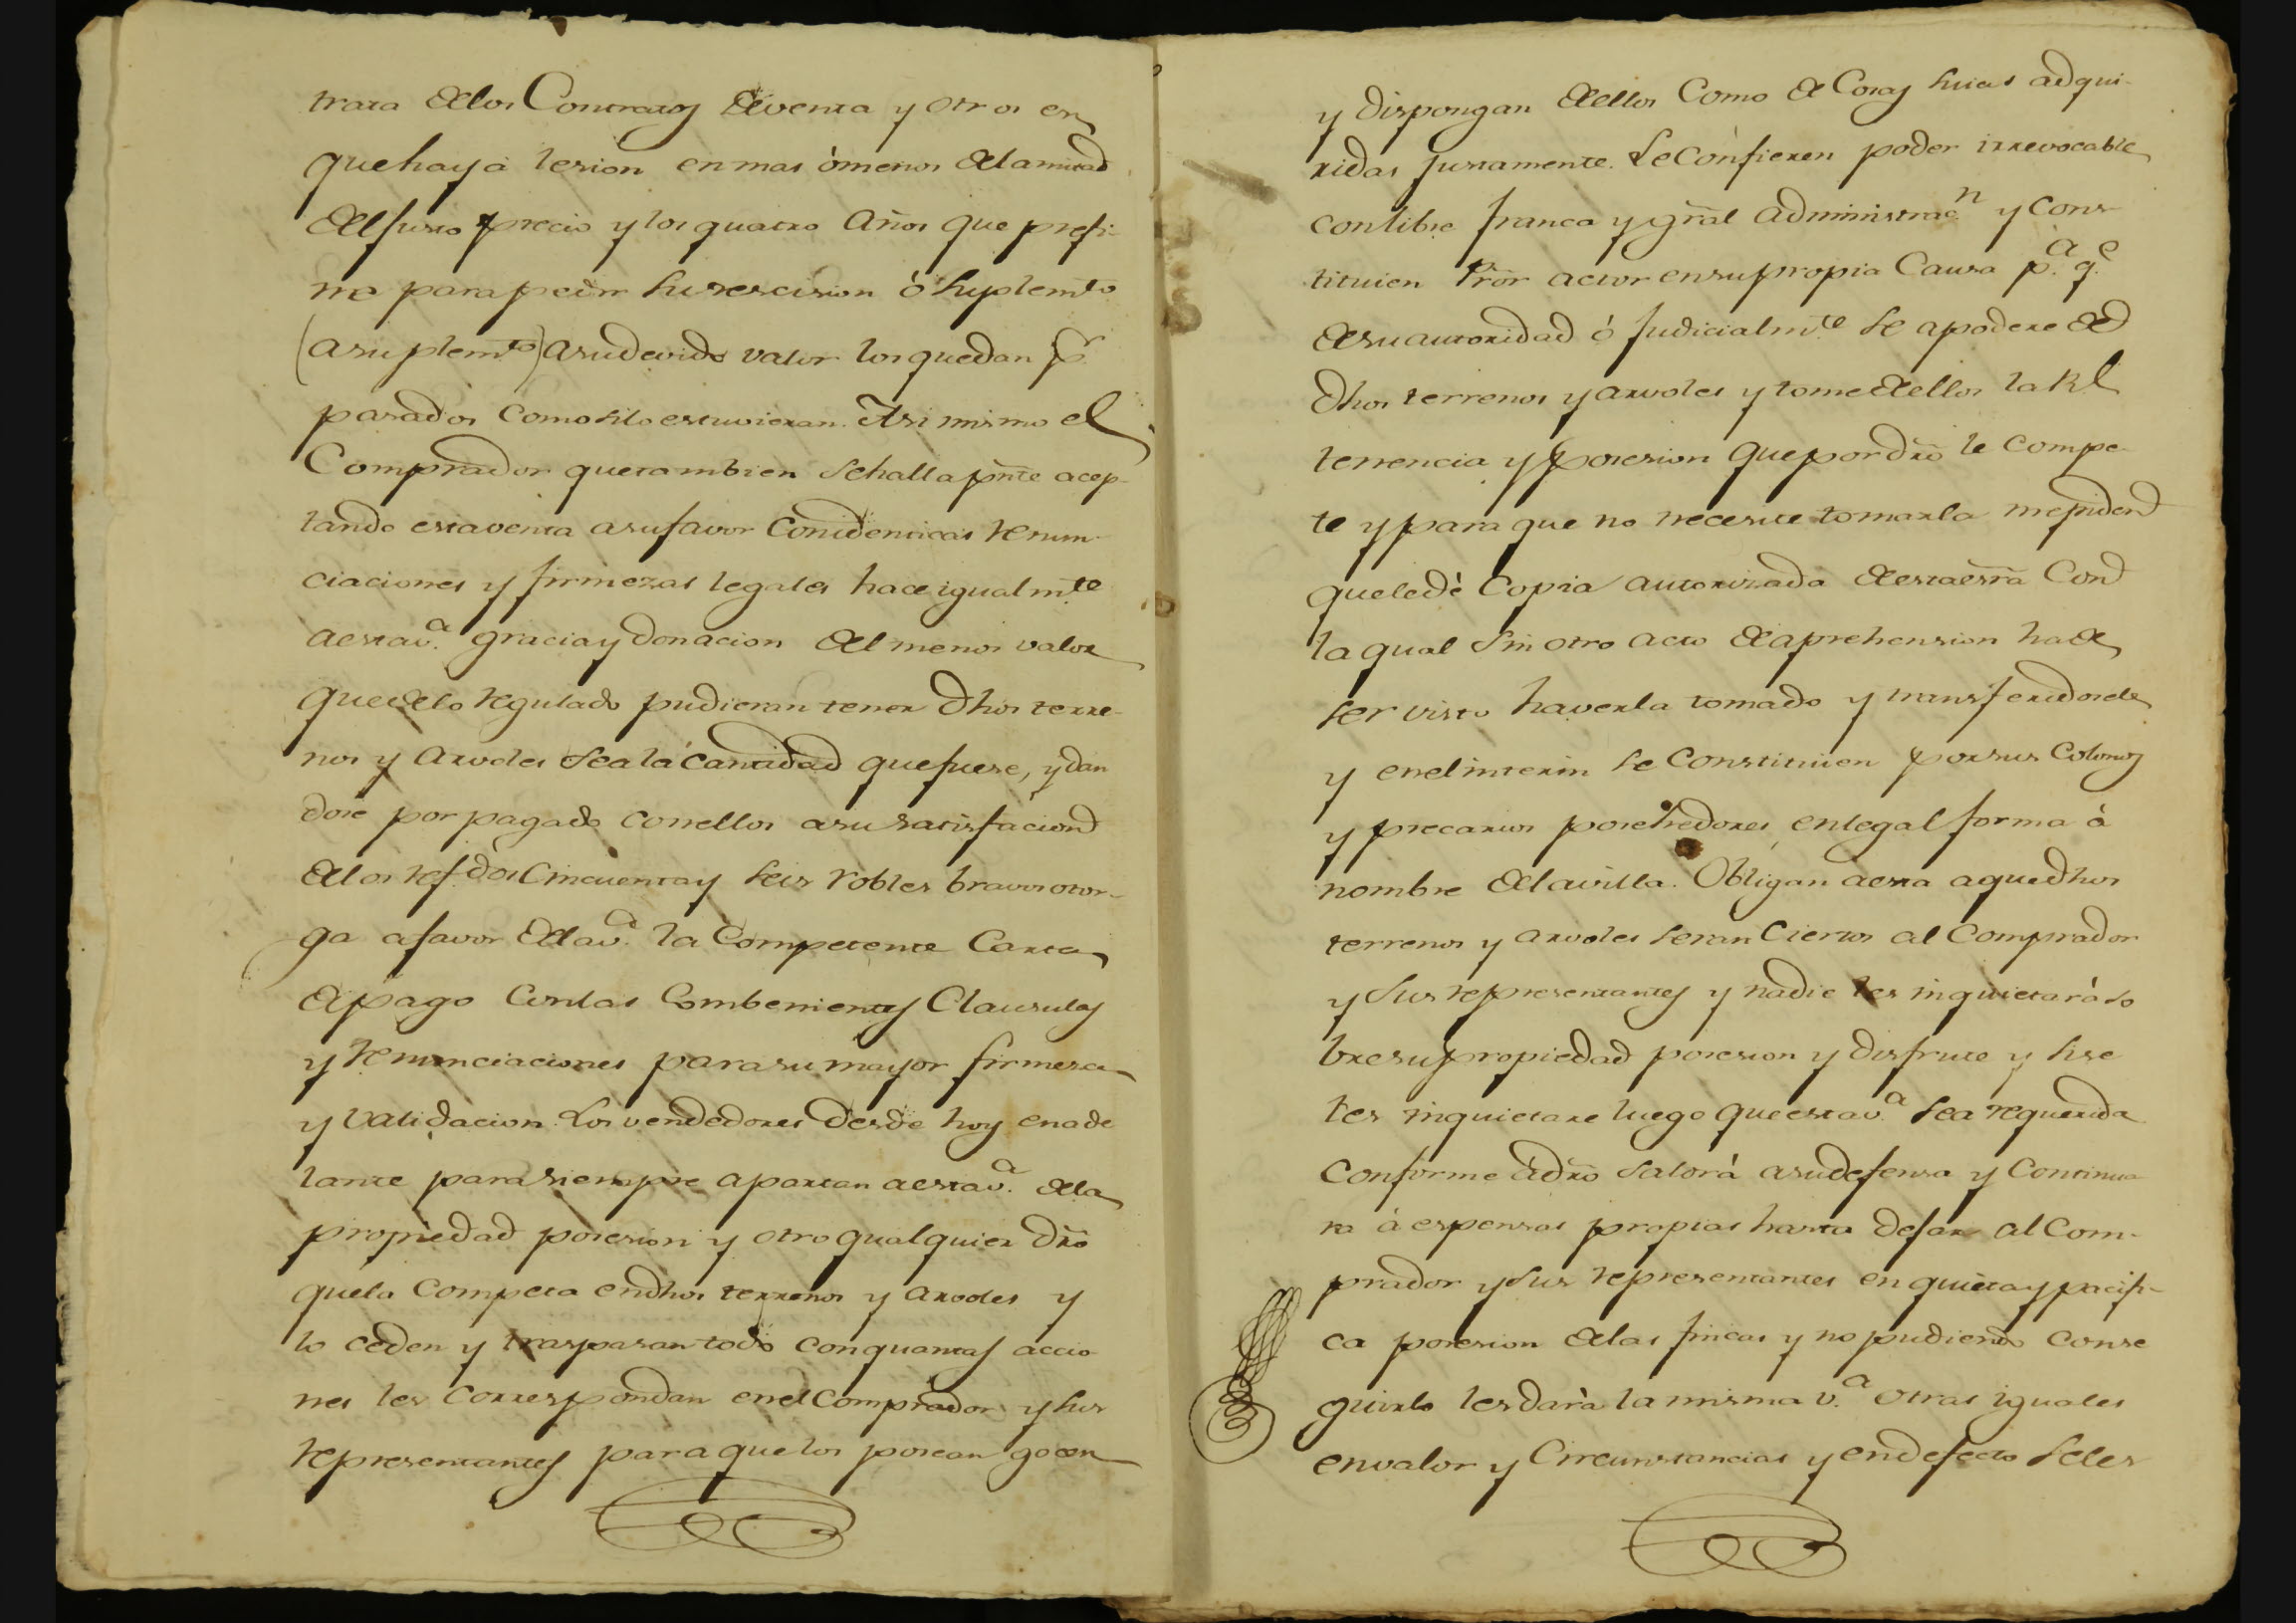 trata de los Contratos de venta y otros en
que haya lesion en mas ò menos de la mitad
del justo precio y los quatro años que prefi-
ne para pedir su rescision ò suplemto
(a suplemto) a su devido valor los quedan p.r
pasados como si lo estuvieran. Asi mismo el
Comprador que tambien se halla pnte acep-
tando esta venta a su favor con identicas renun-
ciaciones y firmezas legales hace igualm.te
a esta v.a gracia y donacion del menos valor
que de lo regulado pudieran tener dhos terre-
nos y arvoles sea la cantidad que fuese, y dan
dose por pagado con ellos a su satisfacion
de los refdos Cincuenta y seis robles bravos otor-
ga a favor de la v.a la Competente Carta
de pago con las Combenientes Clausulas
y renunciaciones para su mayor firmeza
y validacion. Los vendedores desde hoy en ade
lante para siempre apartan a esta v.a de la
propiedad posesion y otro qualquier dro
que la competa en dhos terrenos y arvoles y
lo ceden y traspasan todo con quantas accio
nes les correspondan en el Comprador y sus
representantes para que los posean gocen
y dispongan de ellos Como de Cosas suias adqui-
ridas justamente. Le Confieren poder irrevocable
con libre franca y gral administrac.n y cons-
tituien Pror actor en su propia Causa p.a q.e
de su autoridad ò judicialm.te se apodere de
dhos terrenos y arvoles y tome de ellos la Rl
tenencia y posesion que por dro le compe-
te y para que no necesite tomarla me piden
que le dè Copia autorizada de esta esra Con
la qual sin otro acto de aprehension ha de
ser visto haverla tomado y transferidosele
y en el interin se Constituien por sus Colonos
y precarios posehedores en legal forma à
nombre de la villa. Obligan a esta a que dhos
terrenos y arvoles seran Ciertos al Comprador
y sus representantes y nadie les inquietarà so
bre su propiedad posesion y disfrute y si se
les inquietare luego que esta v.a sea requerida
Conforme à dro saldrá a su defensa y Continua
ra à espensas propias hasta dejar al Com-
prador y sus representantes en quieta y pacifi-
ca posesion de las fincas y no pudiendo conse
guirlo les darà la misma v.a otras iguales
en valor y Circunstancias y en defecto se les